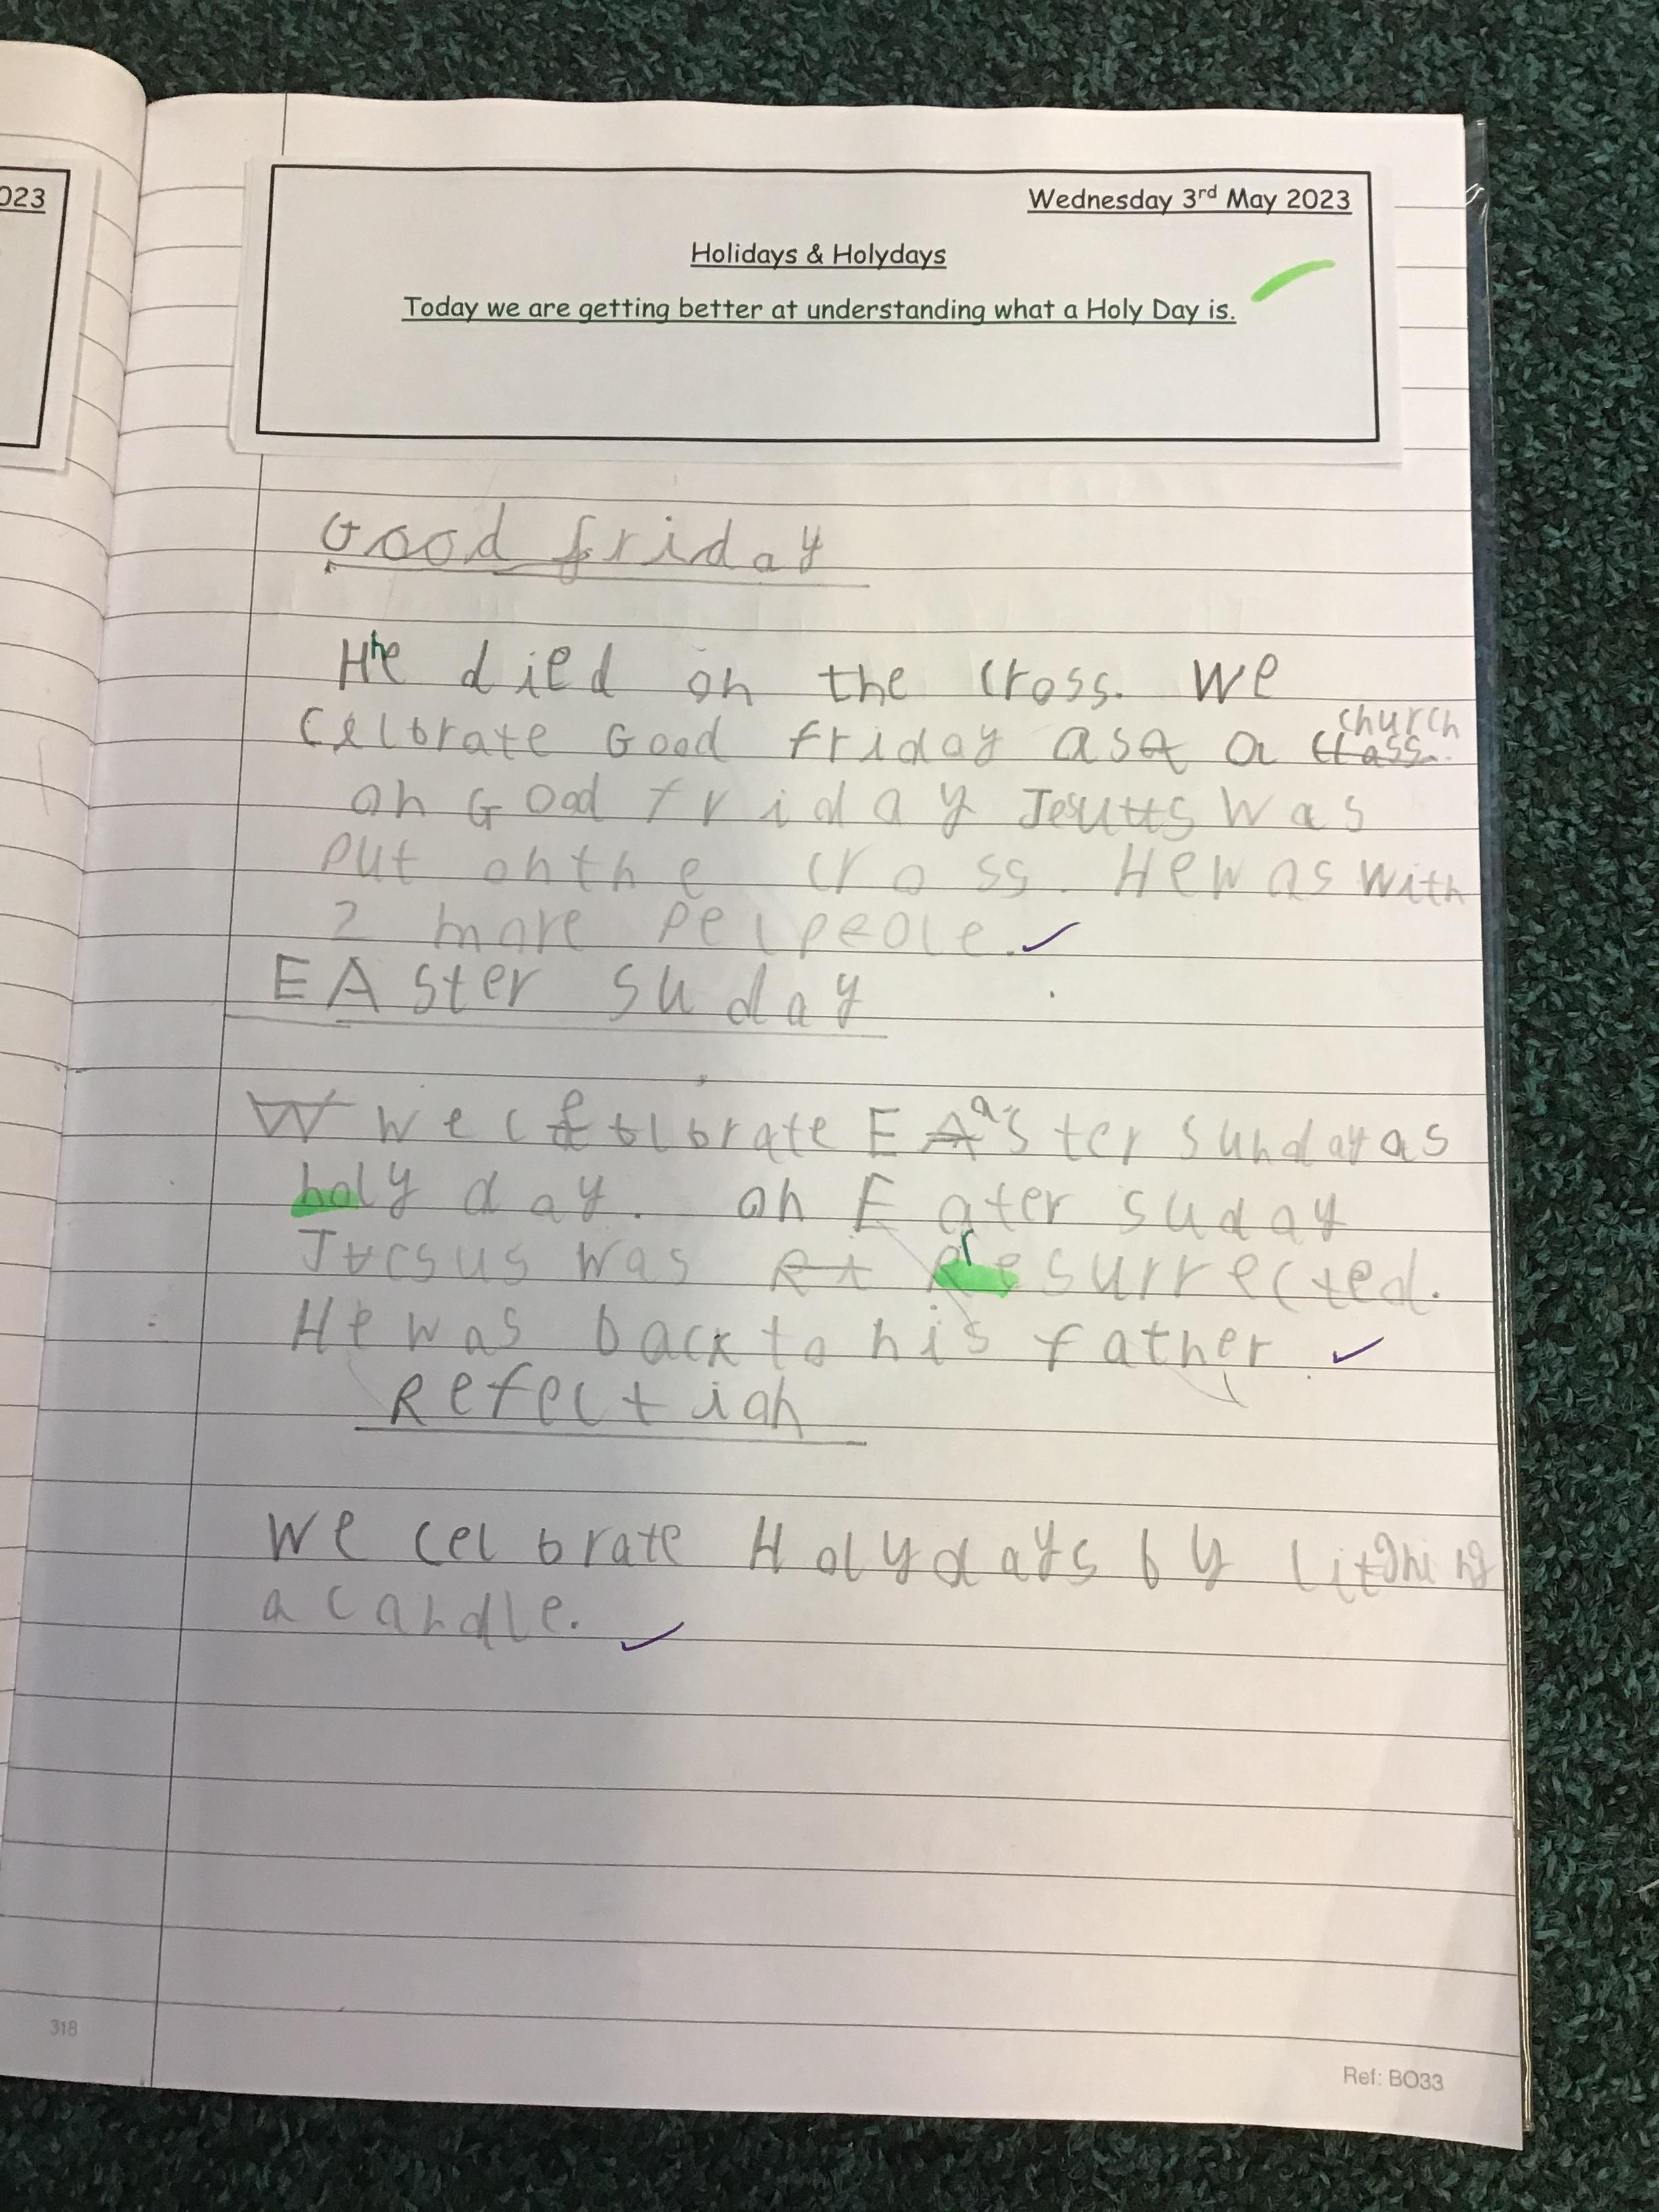 023
Wednesday 3rd May 2023
Holidays & Holydays
Today we are getting better at understanding what a Holy Day is.
Good friday
He died on the cross. We
Celbrate Good friday as a church
on Good friday Jesus was
put onthe cross. He was with
2 more peolpeole.
EAster suday
We celbrate Easter sunday as
holy day. on Eater suday
Jesus was resurrected.
He was back to his father
Refection
We celbrate Holydays by litghing
a candle.
318
Ref: BO33